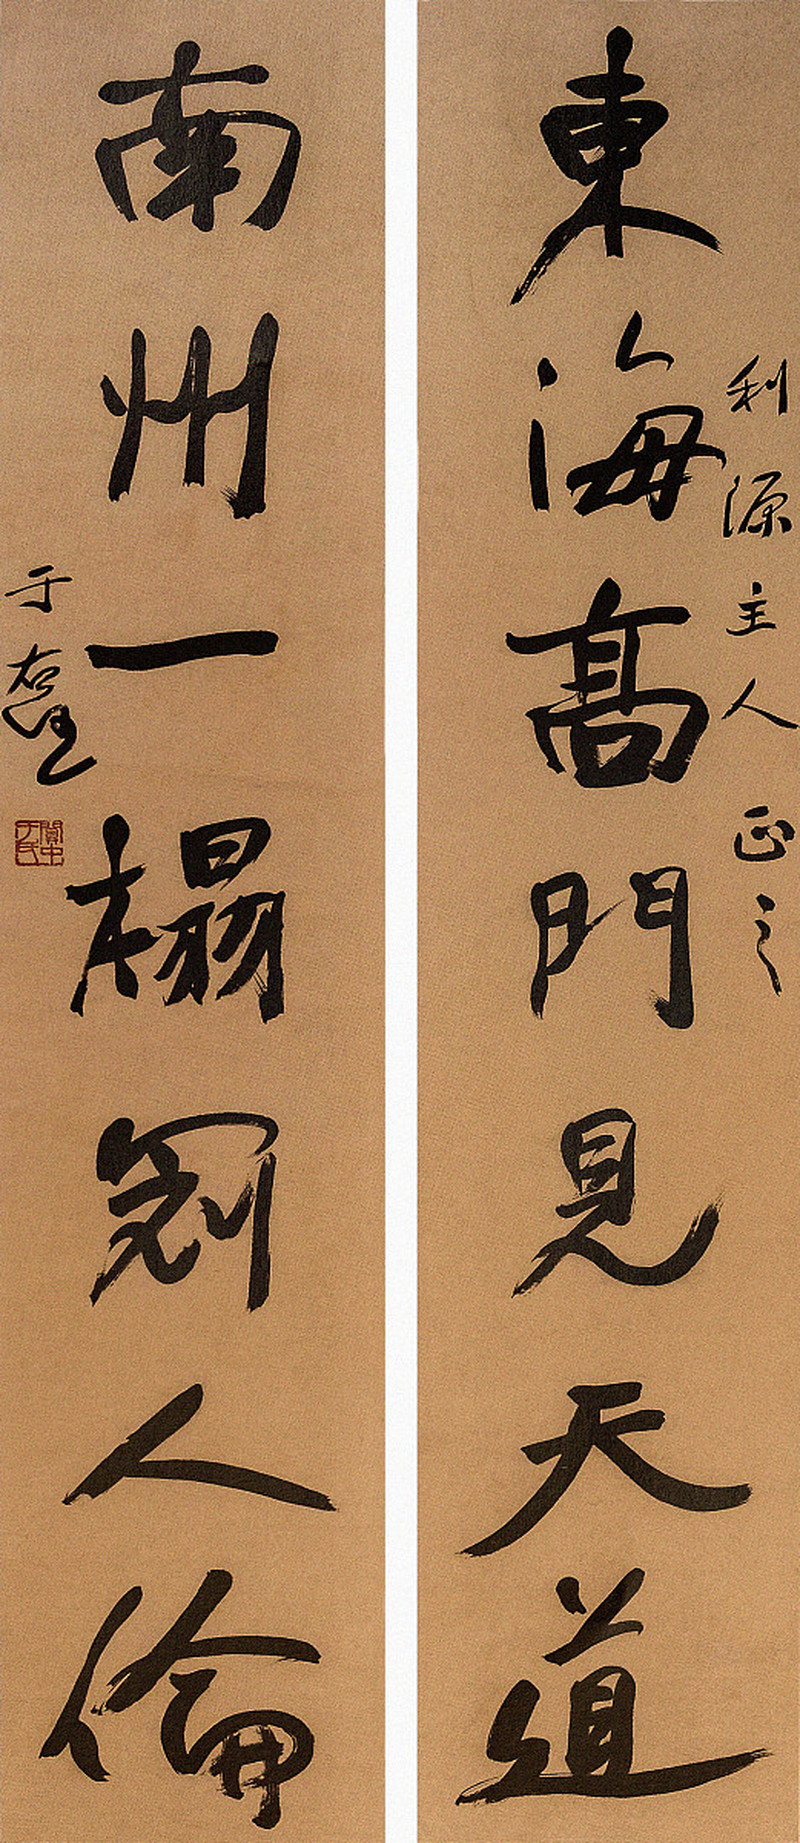 東海高門見天道
利源主人正之
南州一榻冠人倫
于右任
關中于氏